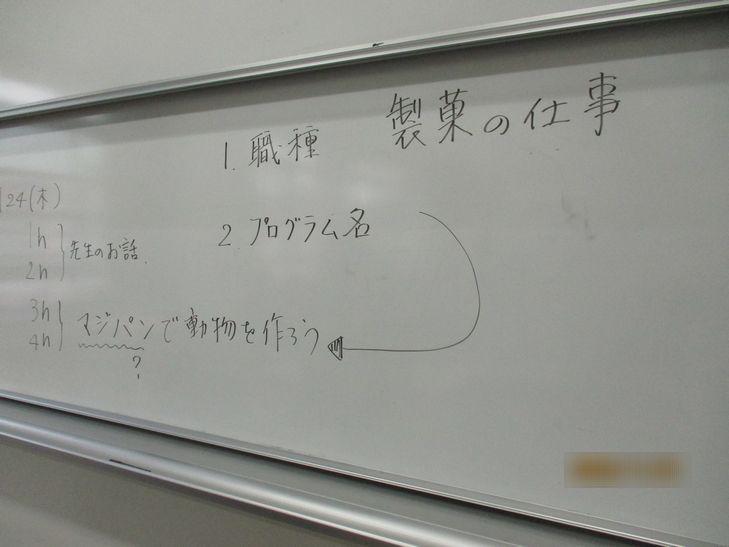 1. 職種 製菓の仕事
2. プログラム名
24(木)
1h
2h
先生のお話.
3h
4h
マジパンで動物を作ろう
?